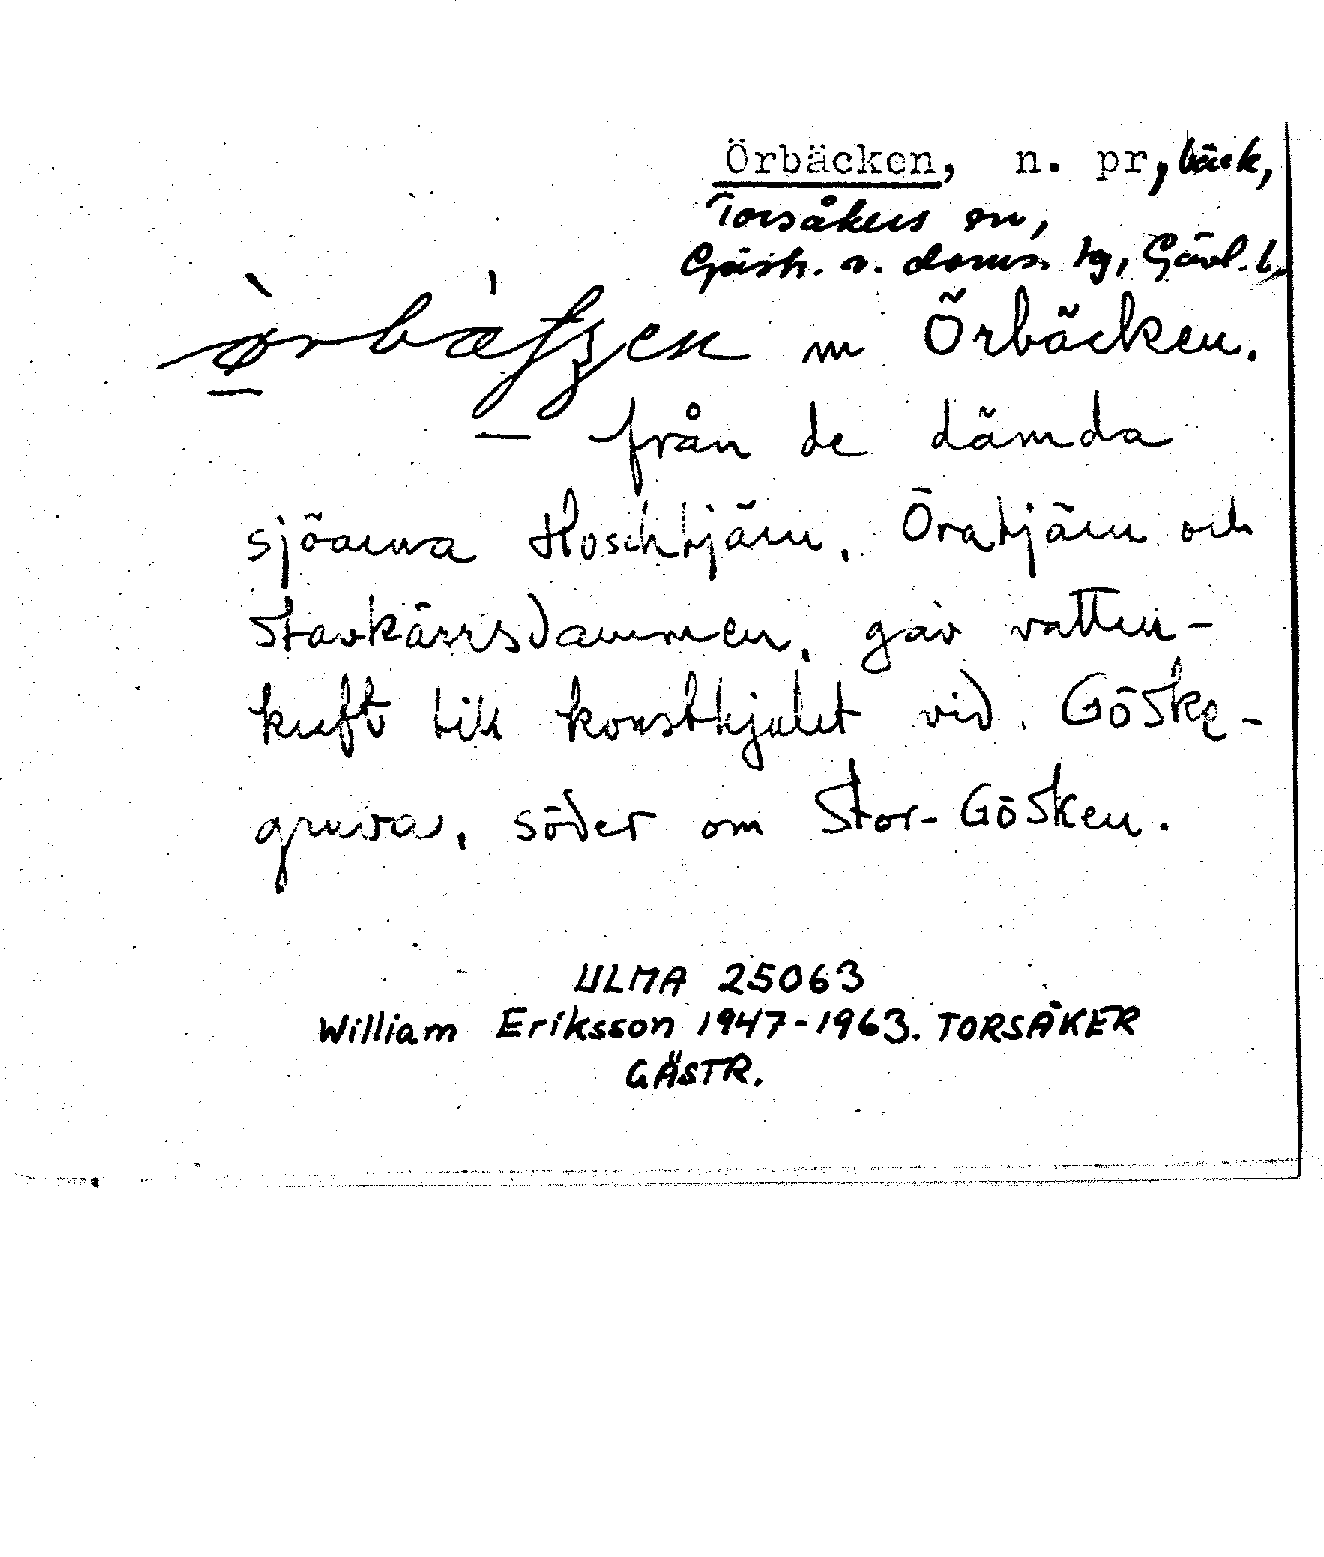 Örbäcken, n. pr, bäck,
Torsåkers sn,
Gästr. v. doms. tg, Gävl. l.
m Örbäcken.
— från de dämda
sjöarna Koschtjärn, Öratjärn och
Stavkärrsdammen, gav vatten-
kraft till konsthjulet vid Göske-
gruva, söder om Stor-Gösken.
ULMA 25063
William Eriksson 1947-1963. TORSÅKER
GÄSTR.